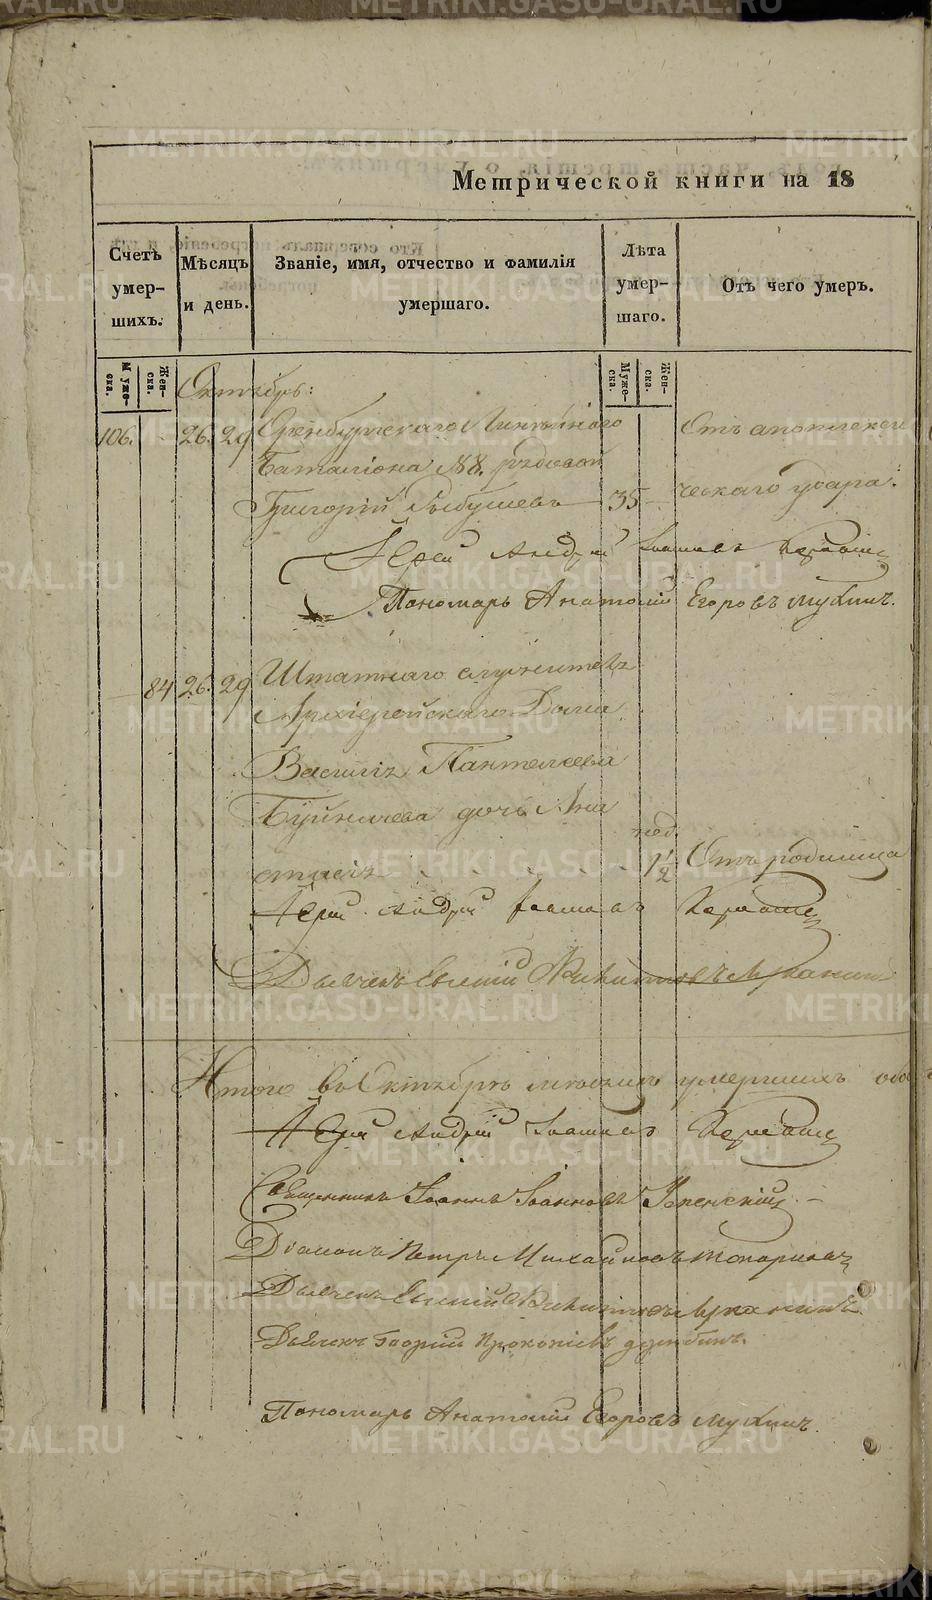 METRIKI.GASO-URAL.RU
Метрической книги на 18
Счетъ умер- шихъ.
Мѣсяцъ и день.
Званіе, имя, отчество и фамилія умершаго.
Лѣта умер- шаго.
Отъ чего умеръ.
Муже- ска.
Жен- ска.
Муже- ска.
Жен- ска.
Октябрь:
106. 26. 29 Оренбургскаго Линѣйнаго Отъ апоплекси
Баталіона №8. рядовой
Григорій 35 ческаго удара.
Іерей Андрей Іоанновъ
Пономарь Анатолій Егоровъ Мухинъ.
84 26. 29 Штатнаго служителя
Архіерейскаго Дома
Василія Пантелеева
дочь Ана
нед.
стасія 1½ Отъ родимца
Іерей Андрей Іоанновъ
Дьячекъ Евгеній Никитинъ
Итого въ Октябрѣ мѣсяцѣ умершихъ обо
Іерей Андрей Іоанновъ
Священникъ Іоаннъ Іоанновъ
Діаконъ Петръ Михайловъ Топорковъ
Дьячекъ Евгеній
Дьячекъ Георгій Прокопіевъ
Пономарь Анатолій Егоровъ Мухинъ.